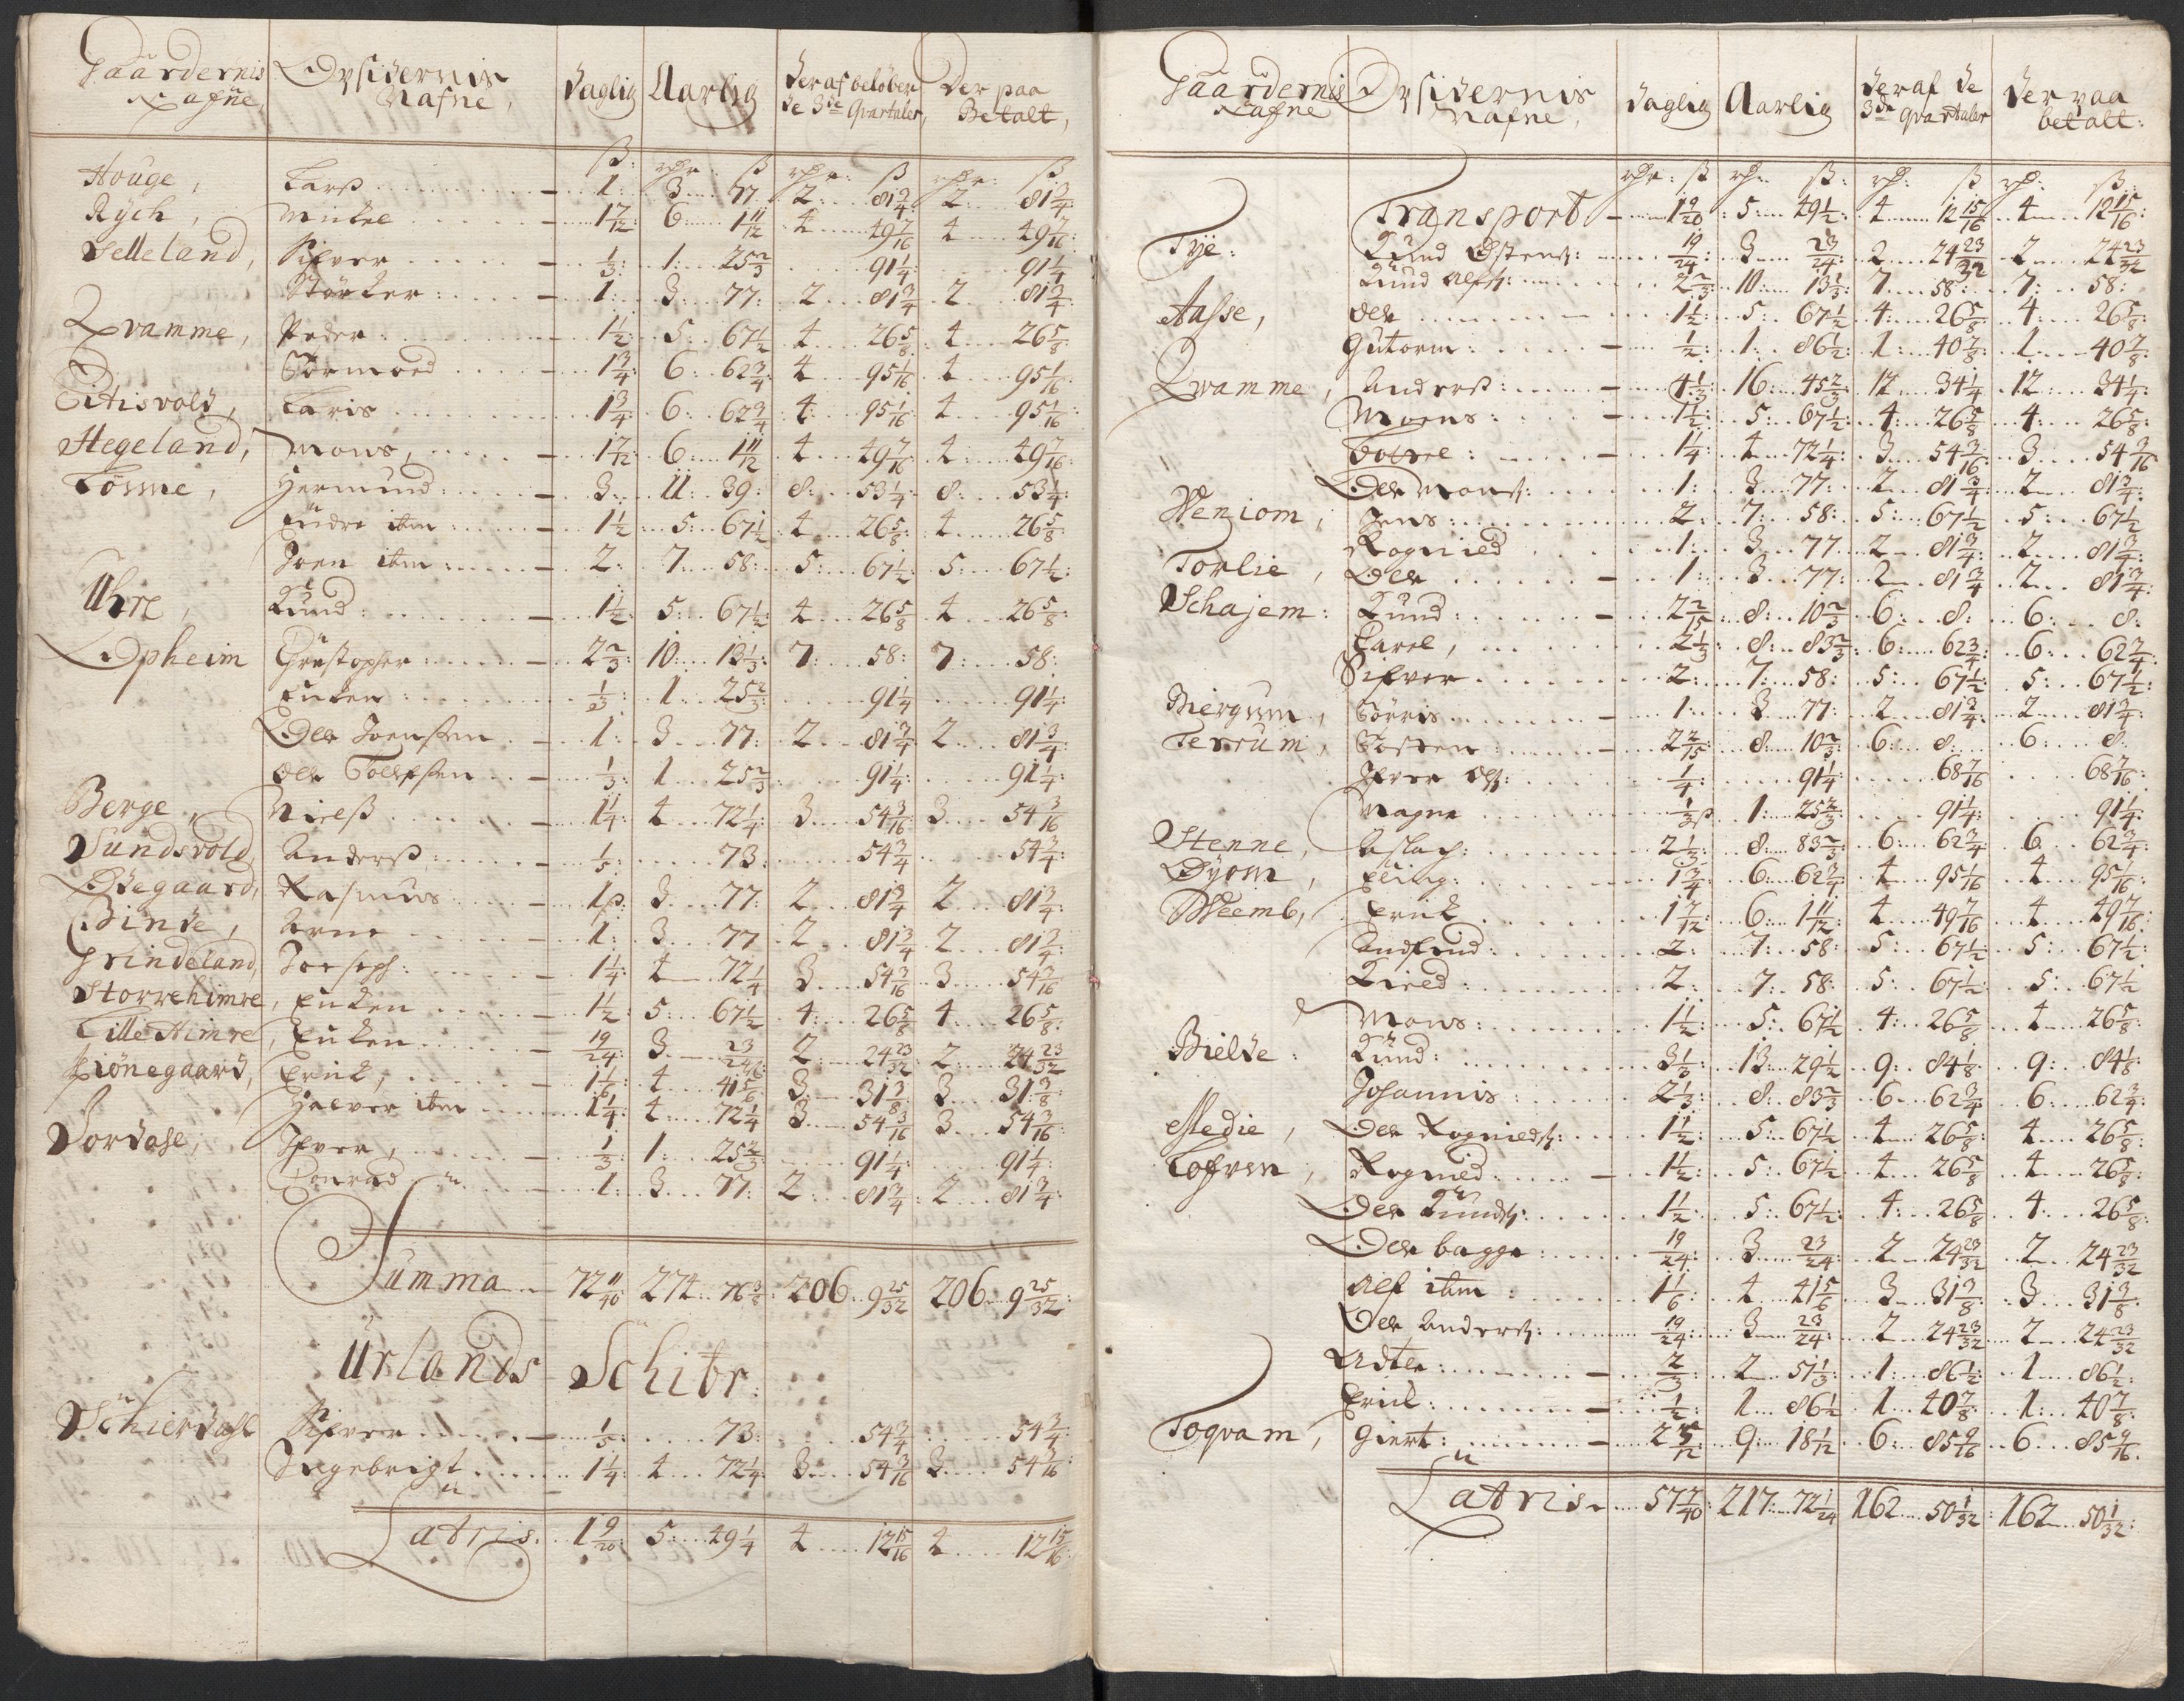 Gaardernis Nafne, Opsidernis Nafne, Daglig Aarlig Deraf beløber de 3de Qvartaler, Der paa Betalt,
ß: rdr ß rdr: ß rdr: ß
Houge, Larß 1: 3 77 2: 81 3/4 2: 81 3/4
Rÿch, Mickel 1 7/12 6 1 11/12 4 49 7/16 4 49 7/16
Selleland, Sifver 1/3: 1: 25 2/3 91 1/4 91 1/4
Störker: 1: 3 77: 2 81 3/4 2 81 3/4
Qvamme, Peder 1 1/2: 5: 67 1/2 4 26 5/8 4 26 5/8
Tormoed 1 3/4 6: 62 3/4 4 95 1/16 4 95 1/16
Eitisvold, Laris 1 3/4: 6: 62 3/4 4: 95 1/16 4 95 1/16
Hegeland, Mons, 1 7/12 6 1 11/12 4 49 7/16 4: 49 7/16
Tosme, Hermund: 3 11: 39: 8: 53 1/4 8: 53 1/4
Endre ibm 1 1/2 5: 67 1/2 4 26 5/8 4 26 5/8
Joen ibm 2: 7 58: 5: 67 1/2 5: 67 1/2
Uhre, Knud 1 1/2: 5: 67 1/2 4 26 5/8 4 26 5/8
Opheim Christopher 2 2/3: 10: 13 1/3: 7: 58: 7: 58:
Encken 1/3: 1 25 2/3: 91 1/4 91 1/4
Ole Joensen 1: 3 77: 2 81 3/4 2 81 3/4
Ole Toelfsen 1/3: 1 25 2/3 91 1/4: 91 1/4:
Berge, Nielß 1 1/4: 4 72 1/4: 3 54 3/16: 3 54 3/16
Sundsvold, Anderß 1/5: 73: 54 3/4 54 3/4
Ødegaard, Rasmus 1ß: 3 77: 2 81 3/4 2 81 3/4
Binde, Arne 1: 3 77 2 81 3/4 2 81 3/4
Grindeland, Joseph: 1 1/4: 4 72 1/4 3 54 3/16 3 54 3/16
Storrehimre, Encken 1 1/2: 5: 67 1/2 4: 26 5/8 4 26 5/8
Lille Himre, Encken 19/24: 3 23/24 2: 24 23/32 2: 24 23/32
Kiönegaard, Erick, 1 1/6: 4 41 5/6 3 31 3/8 3 31 3/8
Halvor ibm 1 1/4: 4 72 1/4 3 54 3/16 3 54 3/16
Sordahl, Ifver, 1/3 1: 25 2/3 91 1/4: 91 1/4
Conrad 1: 3 77: 2 81 3/4 2 81 3/4
Summa 72 11/40: 274 76 3/8 206 9 25/32 206 9 25/32
Urlands Schibr:
Schierdahl Sifver 1/5: 73: 54 3/4 54 3/4
Ingebrigt 1 1/4: 4 72 1/4 3 54 3/16 3 54 3/16
Latris 1 9/20: 5: 49 1/4 4 12 15/16 4 12 15/16
Gaardernis Nafne Opsidernis Nafne, Daglig Aarlig Deraf de 3de Qvartaler Der paa betalt:
rdr: ß rd: ß: rd: ß rd: ß:
Transport 1 9/20: 5: 49 1/2 4 12 15/16 4 12 15/16
Tÿe: Knud Østens: 19/24: 3 23/24: 2 24 23/32 2 24 23/32
Knud Alfs: 2 2/3: 10: 13 1/3: 7 58: 7: 58:
Aasse, Ole 1 1/2: 5: 67 1/2 4: 26 5/8 4: 26 5/8
Gutorm: 1/2: 1: 86 1/2: 1: 40 7/8: 1 40 7/8
Qvamme, Anderß 4 1/3: 16: 45 2/3: 12 34 1/4 12: 34 1/4
Moens: 1 1/2: 5: 67 1/2: 4: 26 5/8 4: 26 5/8
1 1/4: 4 72 1/4: 3 54 3/16: 3 54 3/16
Ole Mons: 1: 3 77: 2 81 3/4 2 81 3/4
Weniom, Jens: 2: 7: 58: 5: 67 1/2 5: 67 1/2
Rognied 1: 3 77 2 81 3/4: 2 81 3/4
Torlie, Ole 1: 3 77: 2 81 3/4 2 81 3/4:
Schajem: Knud: 2 2/15: 8: 10 2/3 6: 8: 6: 8:
Carel, 2 1/3: 8: 83 2/3 6: 62 3/4: 6: 62 3/4
Sifver 2: 7: 58: 5: 67 1/2: 5: 67 1/2
Biergum, Törris 1: 3 77: 2 81 3/4 2 81 3/4
Terrum, Torsten 2 2/15: 8: 10 2/3 6: 8: 6: 8:
Ifver Ols: 1/4: 91 1/4: 68 7/16 68 7/16:
Magne 1/3ß 1: 25 2/3 91 1/4: 91 1/4:
Stenne, Aslach: 2 1/3: 8: 83 2/3: 6: 62 3/4 6 62 3/4
Dÿom, Eling: 1 3/4: 6: 62 3/4 4 95 1/16 4 95 1/16:
Weemb, Erick 1 7/12: 6: 1 11/12 4 49 7/16 4 49 7/16:
Andfind: 2: 7: 58: 5: 67 1/2 5: 67 1/2
Kield: 2: 7: 58: 5: 67 1/2 5: 67 1/2
Mons: 1 1/2: 5: 67 1/2 4: 26 5/8 4 26 5/8:
Bielde: Knud: 3 1/3: 13: 29 1/2 9: 84 1/8: 9: 84 1/8
Johannis: 2 1/3: 8: 83 2/3 6: 62 3/4 6: 62 3/4:
Medie, Ole Rognieds: 1 1/2: 5: 67 1/2 4 26 5/8 4 26 5/8
Tofven, Rognied 1 1/2: 5: 67 1/2 4 26 5/8 4 26 5/8:
Ole Knuds: 1 1/2: 5: 67 1/2 4: 26 5/8 4: 26 5/8
Ole bagge: 19/24: 3 23/24: 2 24 23/32 2 24 23/32
Alf ibm: 1 1/6: 4 41 5/6 3 31 3/8 3 31 3/8
Ole Anders: 19/24: 3 23/24: 2 24 23/32 2 24 23/32
2/3: 2 51 1/3: 1: 86 1/2 1 86 1/2:
Erick: 1/2: 1 86 1/2 1 40 7/8 1: 40 7/8
Toqvam, Giert: 2 5/12 9: 18 1/12 6: 85 9/16 6 85 9/16
Latris 57 7/40: 217: 72 1/24 162 50 1/32: 162 50 1/32: